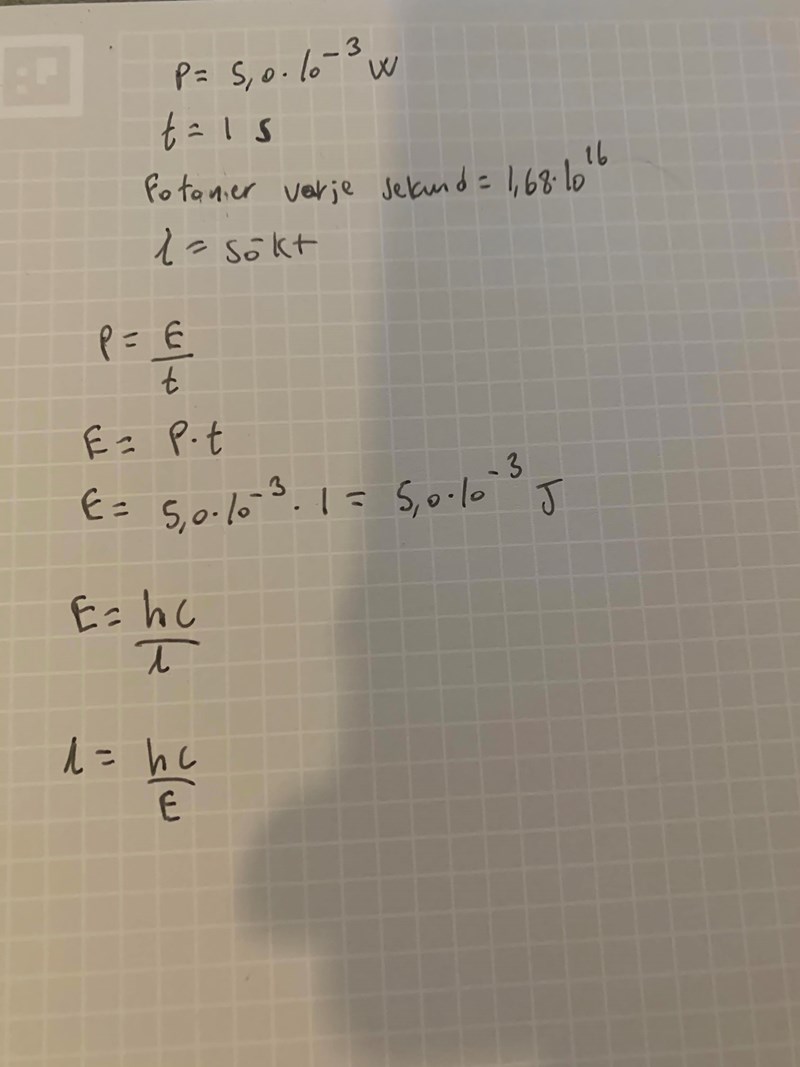 P = 5,0·10⁻³ W
t = 1 s
Fotoner varje sekund = 1,68·10¹⁶
λ = sökt
P = E/t
E = P·t
E = 5,0·10⁻³ · 1 = 5,0·10⁻³ J
E = hc/λ
λ = hc/E